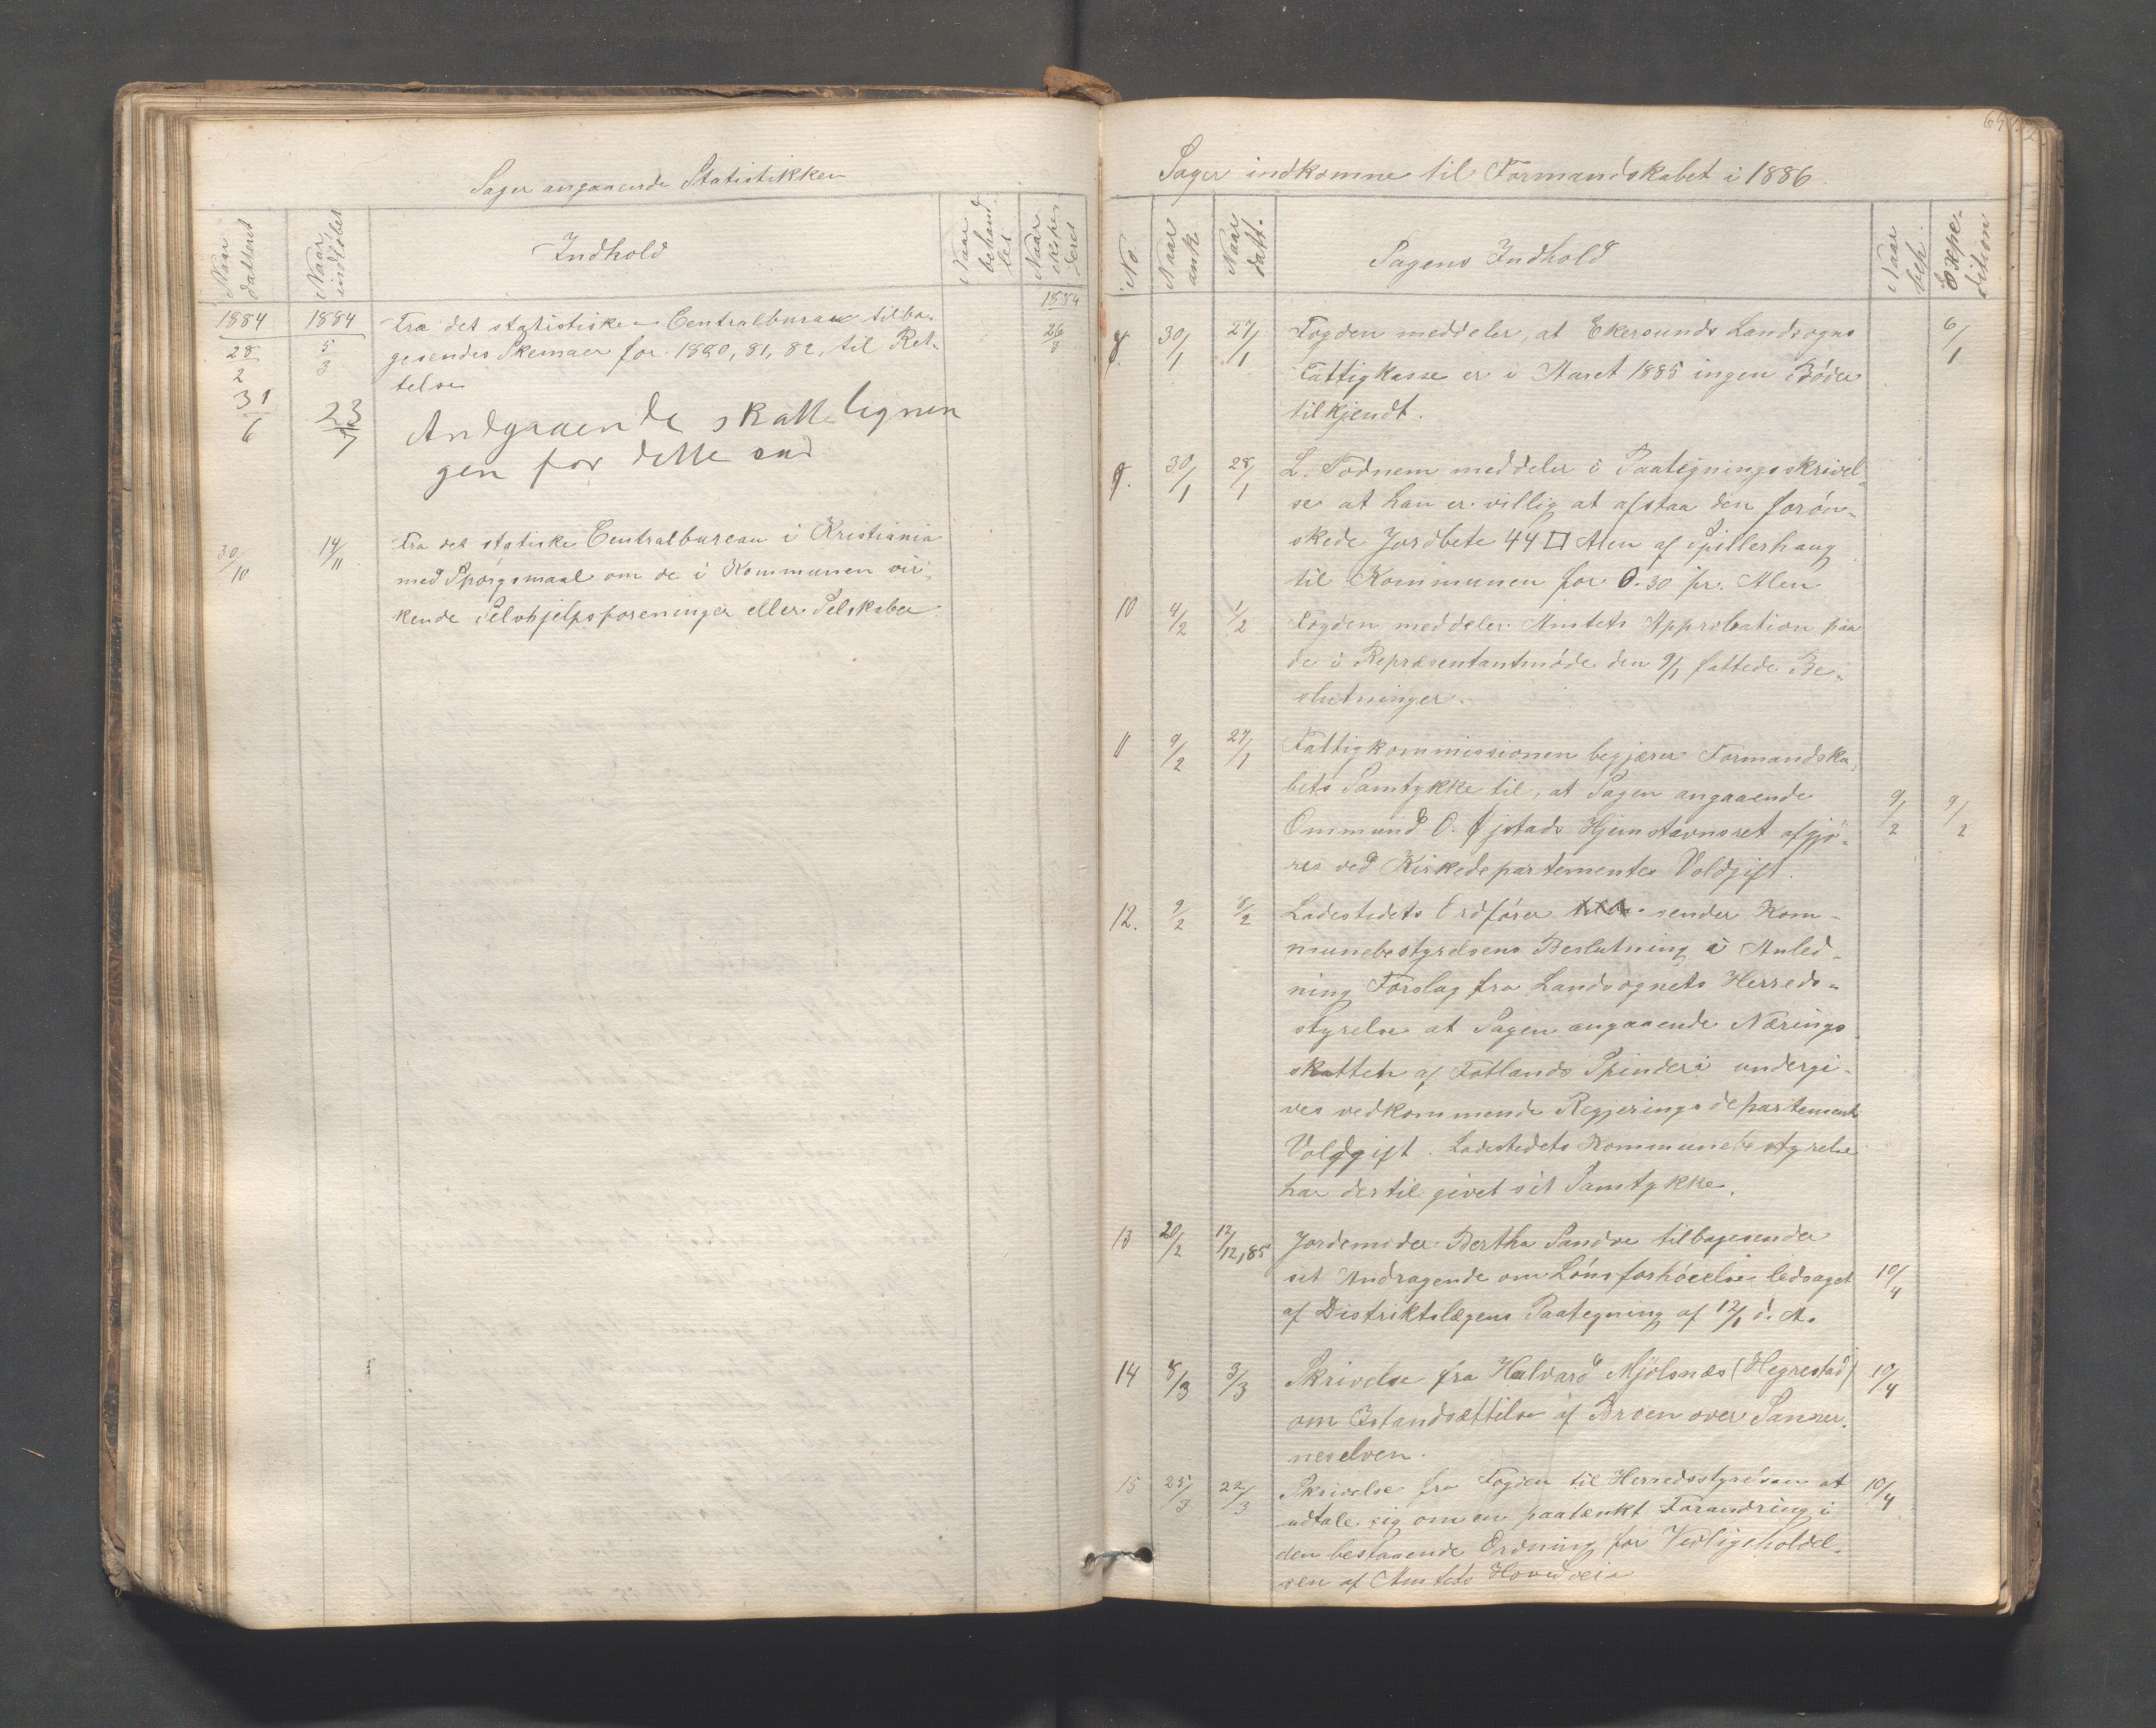 Sager angaaende Statistikken
Naar datteret
Naar indløbet
Indhold
Naar behand-let
Naar ekspe-deret
1884 1884 Fra det statistiske Centralbureau tilba- 1884
28/2 5/3 gesendes Skemaer for 1880, 81, 82, til Ret- 26/8
telse
31/6 23/7 Andgaaende skattelignin
gen for dette aar
30/10 14/11 Fra det statiske Centralbureau i Kristiania
med Spørgsmaal om de i Kommunen vir-
kende Selvhjelpsforeninger eller Selskaber
Sager indkomne til Formandskabet i 1886.
No.
Naar ank
Naar datt.
Sagens Indhold
Naar beh.
Expe-dition
8. 30/1 27/1 Fogden meddeler, at Ekersunds Landsogns 6/1
Fattigkasse er i Aaret 1885 ingen Bøder
tilkjendt.
9. 30/1 28/1 L. Todnem meddeler i Paategningsskrivel-
se at han er villig at afstaa den forøn-
skede Jordbete 44 □ Alen af Spillerhaug
til Kommunen for 0.30 pr. Alen
10 4/2 1/2 Fogden meddeler Amtets Approbation paa
de i Repræsentantmøde den 9/1 fattede Be-
slutninger.
11 9/2 27/1 Fattigkommissionen begjærer Formandska-
bets Samtykke til, at Sagen angaaende 9/2 9/2
Ommund O. Øjstads Hjemstavnsret afgjø-
res ved Kirkedepartementes Voldgift.
12. 9/2 8/2 Ladestedets Ordfører sender Kom-
munebestyrelsens Beslutning i Anled-
ning Forslag fra Landsognets Herreds-
styrelse at Sagen angaaende Nærings
skatten af Fotlands Spinderi undergi-
ves vedkommende Regjeringsdepartements
Voldgift. Ladestedets Kommunebestyrelse
har dertil givet sit Samtykke.
13 20/2 12/12,85 Jordemoder Bertha Sandve tilbagesender
sit Andragende om Lønsforhøielse ledsaget 10/4
af Distriktslægens Paategning af 12/1 d. A.
14 8/3 3/3 Skrivelse fra Halvard Mjølsnæs (Hegrestad) 10/4
om Istandsættelse af Broen over
neselven.
15 25/3 22/3 Skrivelse fra Fogden til Herredsstyrelsen at 10/4
udtale sig om en paatænkt Forandring i
den bestaaende Ordning for Vedligeholdel-
sen af Amtets Hovedveie